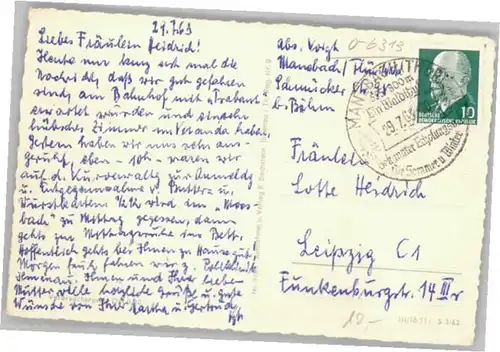 29.7.63
Liebes Fräulein Heidrich!
Heute nur kurz erst mal die
Nachricht, daß wir gut gefahren
sind, am Bahnhof mit "Trabant"
erwartet wurden und ein
hübsches Zimmer m. Veranda haben.
Gestern haben wir uns sehr aus-
geruht, eben - 10h - waren wir
auf d. Kurverwaltg. zur Anmeldg
u. Entgegennahme v. Butter- u.
Wurstkarten. Jetzt wird im "Moos-
bach" zu Mittag gegessen, dann
gehts zur Mittagsruhe ins Bett.
Hoffentlich gehts bei Ihnen zu Hause gut!
Morgen früh fahren wir z. Poliklinik
Ilmenau. Ihnen und Ihrer lieben
Mutter viele herzliche Grüße u. gute
Wünsche von Ihrer Martha u. Gertrud
Abs. Voigt
Manebach/Thür.
bei Böhm
0-6319
DEUTSCHE
DEMOKRATISCHE REPUBLIK
10
29.7.63
Sommer u. Winter
Fräulein
Lotte Heidrich
Leipzig C1
Funkenburgstr. 14 III r
10-